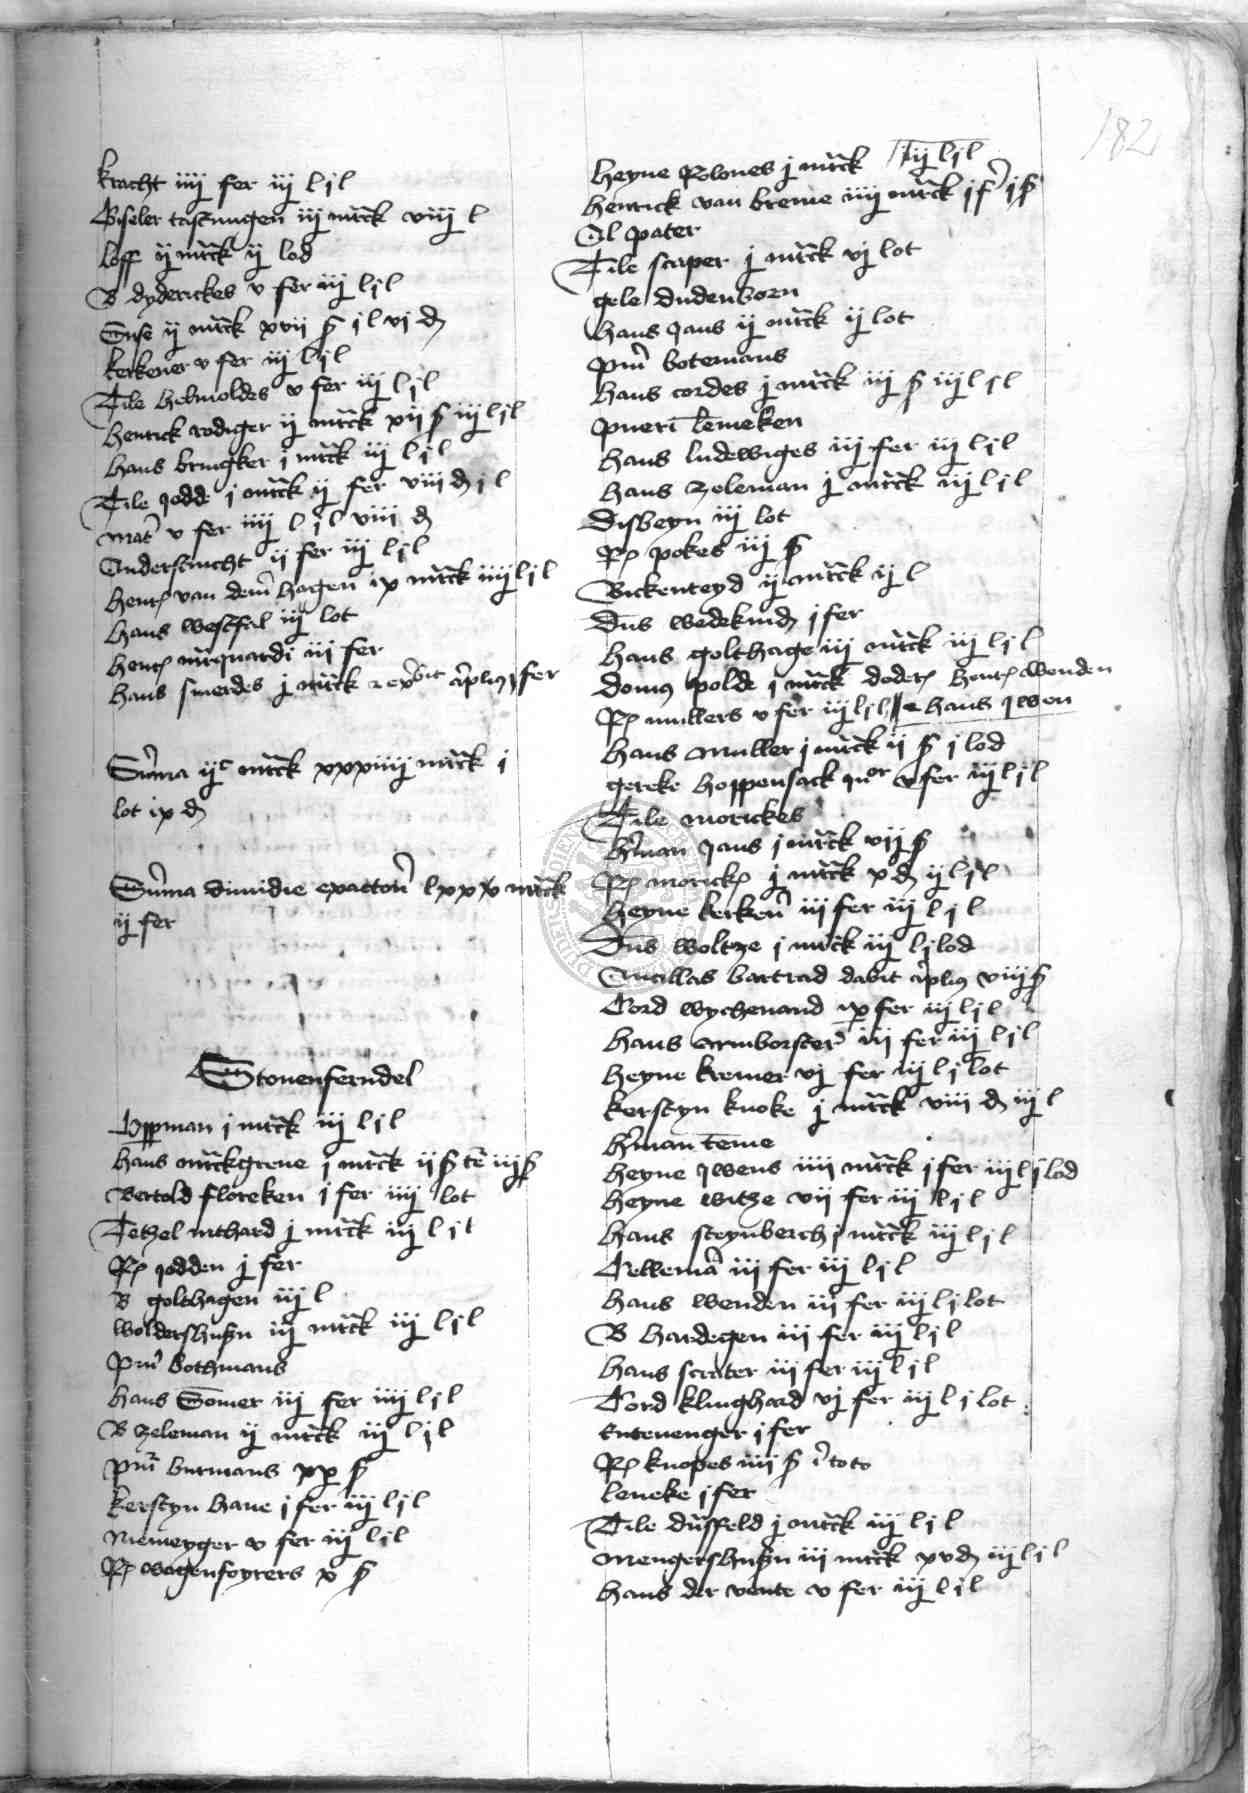 182
kracht iiij fer iij l j l
Giseler tastungen iij mrck viij l
loff ij mrck ij lod
B dyderickes v fer iij l j l
Suse ij mrck xvij ß j l vj d
kerkener v fer iij l j l
Tile helmoldes v fer iij l j l
henrick rodiger ij mrck xij ß iij l j l
hans brugker j mrck iij l j l
Tile jodde j mrck ij fer viij d j l
mat v fer iiij l j l viij d
Anderstucht ij fer iij l j l
henr van dem hagen ix mrck iiij l j l
hans westfal iij lot
henr mrquardi iij fer
hans smerdes j mrck fer
Suma ijc mrck xxxiiij mrck j
lot ix d
Suma dimidie exaction lxxx mrck
ij fer
Stouenferndel
Oppman j mrck iij l j l
hans mrckgreue j mrck ij ß iij ß
Bertold floreken j fer iiij lot
Tetzel nithard j mrck iij l j l
R jodden j fer
B golthagen iij l
woldershusn iij mrck iij l j l
pm bothmans
hans Somer iij fer iiij l j l
B zeleman ij mrck iij l j l
pm burmans xx ß
kerstyn haue j fer iij l j l
Niemeyger v fer iij l j l
R wagenfoyrers x ß
heyne Rolones j mrck iij l j l
henrick van breme iiij mrck j f j ß
Al pater
Tile scaper j mrck vj lot
gele dudenborn
hans Jans ij mrck ij lot
pm botemans
hans cordes j mrck iij ß iij l j l
pueri lemeken
hans ludewiges iij fer iij l j l
hans zeleman j mrck iij l j l
Disbeyn iij lot
R pokes iij ß
Bickenteyd ij mrck ij l
Dns wedekind j fer
hans golthage iij mrck iij l j l
domus polde j mrck doder henr wenden
R mullers v fer iij l j l hans jwen
hans muller j mrck ij ß j lod
gereke hoppensack v fer iij l j l
Tile morickes
hman Jans j mrck vij ß
R morick j mrck x d ij l j l
heyne kerken iij fer iij l j l
Dns woltze j mrck iij l j lod
Ancillas bartrad dabit aplius viij ß
Cord wychenand ix fer iij l j l
hans armborster iij fer iij l j l
heyne kremer vj fer iij l j lot
kerstyn knoke j mrck viij d iij l
hman teme
heyne jwens iiij mrck j fer iij l j lod
heyne witze vij fer iij l j l
hans steynberch j mrck iij l j l
Cellema iij fer iij l j l
hans wenden iij fer iij l j lot
B hardegen iij fer iij l j l
hans scrater iij fer iij l j l
Cord klinghard vj fer iij l j lot
Enteuenger j fer
R knopes iiij ß i toto
leneke j fer
Tile dusfeld j mrck iij l j l
mengershusn iij mrck xv d iij l j l
hans der vente v fer iij l j l